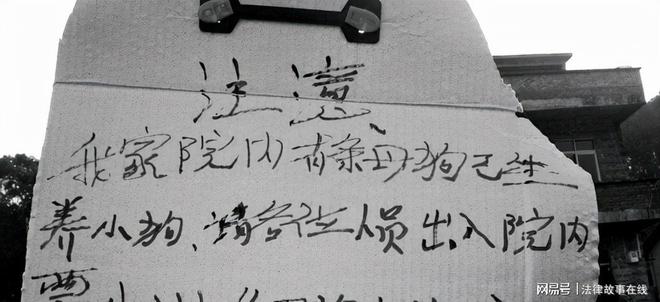 注意
我家院内有条母狗已生
养小狗、请各位人员出入院内
要小
网易号 | 法律故事在线